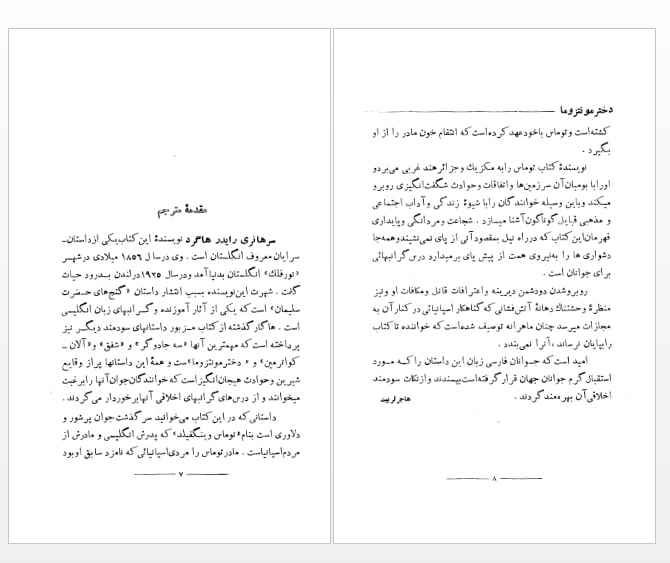 مقدمهٔ مترجم
سرهانری رایدر هاگرد نویسندهٔ این کتاب یکی از داستان‌ـ
سرایان معروف انگلستان است . وی در سال ۱۸۵۶ میلادی در شهر
«نورفلك» انگلستان بدنیا آمد و در سال ۱۹۲۵ در لندن بدرود حیات
گفت . شهرت این نویسنده بسبب انتشار داستان «گنج‌های حضرت
سلیمان» است که یکی از آثار آموزنده و گرانبهای زبان انگلیسی
است . هاگارد گذشته از کتاب مزبور داستانهای سودمند دیگر نیز
پرداخته است که مهمترین آنها «سه جادوگر» و «شفق» و «آلان ـ
کواترمین» و « دختر مونتزوما» ست و همهٔ این داستانها پر از وقایع
شیرین و حوادث هیجان‌انگیز است که خوانندگان جوان آنها را برغبت
میخوانند و از درس‌های گرانبهای اخلاقی آنها برخوردار می‌گردند .
داستانی که در این کتاب می‌خوانید سرگذشت جوان پرشور و
دلاوری است بنام «توماس وینگفیلد» که پدرش انگلیسی و مادرش از
مردم اسپانیاست . مادر توماس را مردی اسپانیائی که نامزد سابق او بود
۷
دختر مونتزوما
کشته‌است و توماس با خود عهد کرده‌است که انتقام خون مادر را از او
بگیرد .
نویسندهٔ کتاب توماس را به مکزیك و جزائر هند غربی می‌برد و
او را با بومیان آن سرزمین‌ها و اتفاقات و حوادث شگفت‌انگیزی روبرو
میکند و باین وسیله خوانندگان را با شیوهٔ زندگی و آداب اجتماعی
و مذهبی قبایل گوناگون آشنا میسازد . شجاعت و مردانگی و پایداری
قهرمان این کتاب که در راه نیل بمقصود آنی از پای نمی‌نشیند و همه‌جا
دشواری ها را به‌نیروی همت از پیش پای برمیدارد درس گرانبهائی
برای جوانان است .
روبرو شدن دو دشمن دیرینه و اعترافات قاتل و مکافات او و نیز
منظرهٔ وحشتناك دهانهٔ آتش‌فشانی که گناهکار اسپانیائی در کنار آن به
مجازات میرسد چنان ماهرانه توصیف شده‌است که خواننده تا کتاب
را بپایان نرساند ، آنرا نمی‌بندد .
امید است که جوانان فارسی زبان این داستان را که مورد
استقبال گرم جوانان جهان قرار گرفته‌است بپسندند و از نکات سودمند
اخلاقی آن بهره‌مند گردند .
هاجر تربیت
۸